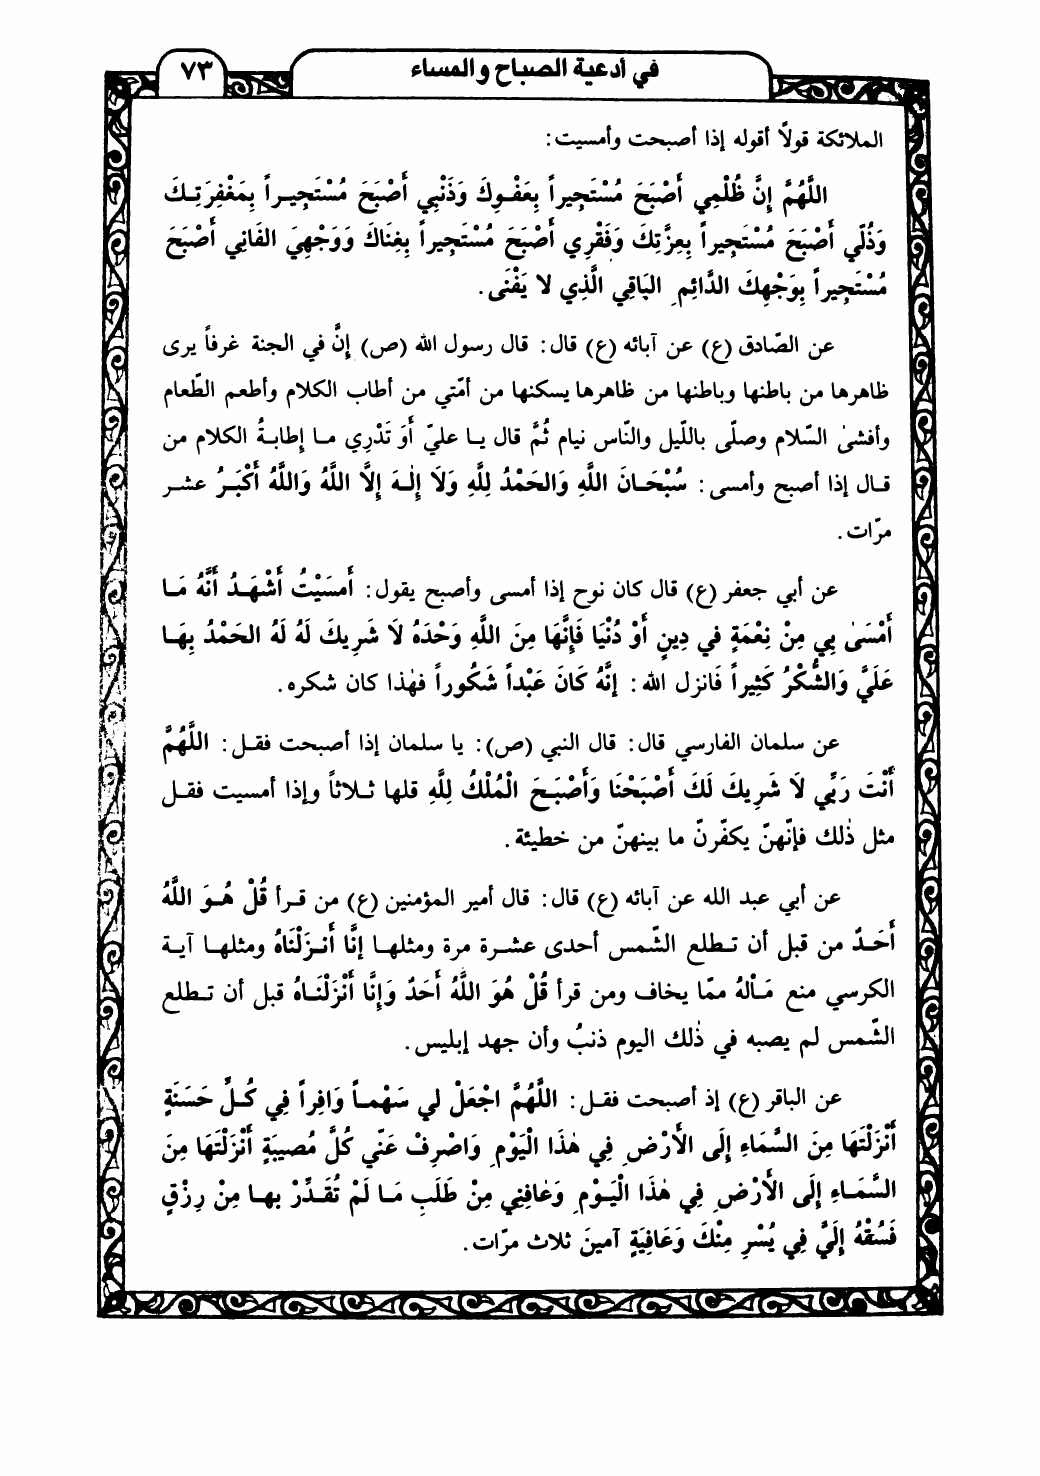 في أدعية الصباح والمساء
٧٣
الملائكة قولاً أقوله إذا أصبحت وأمسيت:
اللَّهُمَّ إِنَّ ظُلْمِي أَصْبَحَ مُسْتَجِيراً بِعَفْوِكَ وَذَنْبِي أَصْبَحَ مُسْتَجِيراً بِمَغْفِرَتِكَ
وَذُلِّي أَصْبَحَ مُسْتَجِيراً بِعِزَّتِكَ وَفَقْرِي أَصْبَحَ مُسْتَجِيراً بِغِنَاكَ وَوَجْهِيَ الفَانِي أَصْبَحَ
مُسْتَجِيراً بِوَجْهِكَ الدَّائِمِ البَاقِي الَّذِي لا يَفْنَى.
عن الصّادق (ع) عن آبائه (ع) قال: قال رسول الله (ص) إنَّ في الجنة غرفاً يرى
ظاهرها من باطنها وباطنها من ظاهرها يسكنها من أمّتي من أطاب الكلام وأطعم الطّعام
وأفشىٰ السّلام وصلّى باللّيل والنّاس نيام ثُمَّ قال يا عليّ أَوَ تَدْرِي ما إطابةُ الكلام من
قال إذا أصبح وأمسى: سُبْحَانَ اللَّهِ وَالحَمْدُ لِلَّهِ وَلَا إِلٰهَ إِلَّا اللَّهُ وَاللَّهُ أَكْبَرُ عشر
مرّات.
عن أبي جعفر (ع) قال كان نوح إذا أمسى وأصبح يقول: أَمسَيْتُ أَشْهَدُ أَنَّهُ مَا
أَمْسَىٰ بِي مِنْ نِعْمَةٍ في دِينٍ أَوْ دُنْيَا فَإِنَّهَا مِنَ اللَّهِ وَحْدَهُ لَا شَرِيكَ لَهُ لَهُ الحَمْدُ بِهَا
عَلَيَّ وَالشُّكْرُ كَثِيراً فَانزل الله: إِنَّهُ كَانَ عَبْداً شَكُوراً فهٰذا كان شكره.
عن سلمان الفارسي قال: قال النبي (ص): يا سلمان إذا أصبحت فقل: اللَّهُمَّ
أَنْتَ رَبِّي لَا شَرِيكَ لَكَ أَصْبَحْنَا وَأَصْبَحَ الْمُلْكُ لِلَّهِ قلها ثلاثاً وإذا أمسيت فقل
مثل ذٰلك فإنّهنّ يكفّرنّ ما بينهنّ من خطيئة.
عن أبي عبد الله عن آبائه (ع) قال: قال أمير المؤمنين (ع) من قرأ قُلْ هُوَ اللَّهُ
أَحَدٌ من قبل أن تطلع الشّمس أحدى عشرة مرة ومثلها إِنَّا أَنزَلْنَاهُ ومثلها آية
الكرسي منع مَالُهُ ممّا يخاف ومن قرأ قُلْ هُوَ اللَّهُ أَحَدٌ وَإِنَّا أَنْزَلْنَاهُ قبل أن تطلع
الشّمس لم يصبه في ذٰلك اليوم ذنبٌ وأن جهد إبليس.
عن الباقر (ع) إذ أصبحت فقل: اللَّهُمَّ اجْعَلْ لي سَهْماً وَافِراً فِي كُلِّ حَسَنَةٍ
أَنْزَلْتَهَا مِنَ السَّمَاءِ إِلَى الأَرْضِ فِي هٰذَا الْيَوْمِ وَاصْرِفْ عَنِّي كُلَّ مُصِيبَةٍ أَنْزَلْتَهَا مِنَ
السَّمَاءِ إِلَى الأَرْضِ فِي هٰذَا الْيَوْمِ وَعَافِنِي مِنْ طَلَبِ مَا لَمْ تُقَدِّرْ بها مِنْ رِزْقٍ
فَسُقْهُ إِلَيَّ فِي يُسْرٍ مِنْكَ وَعَافِيَةٍ آمينَ ثلاث مرّات.